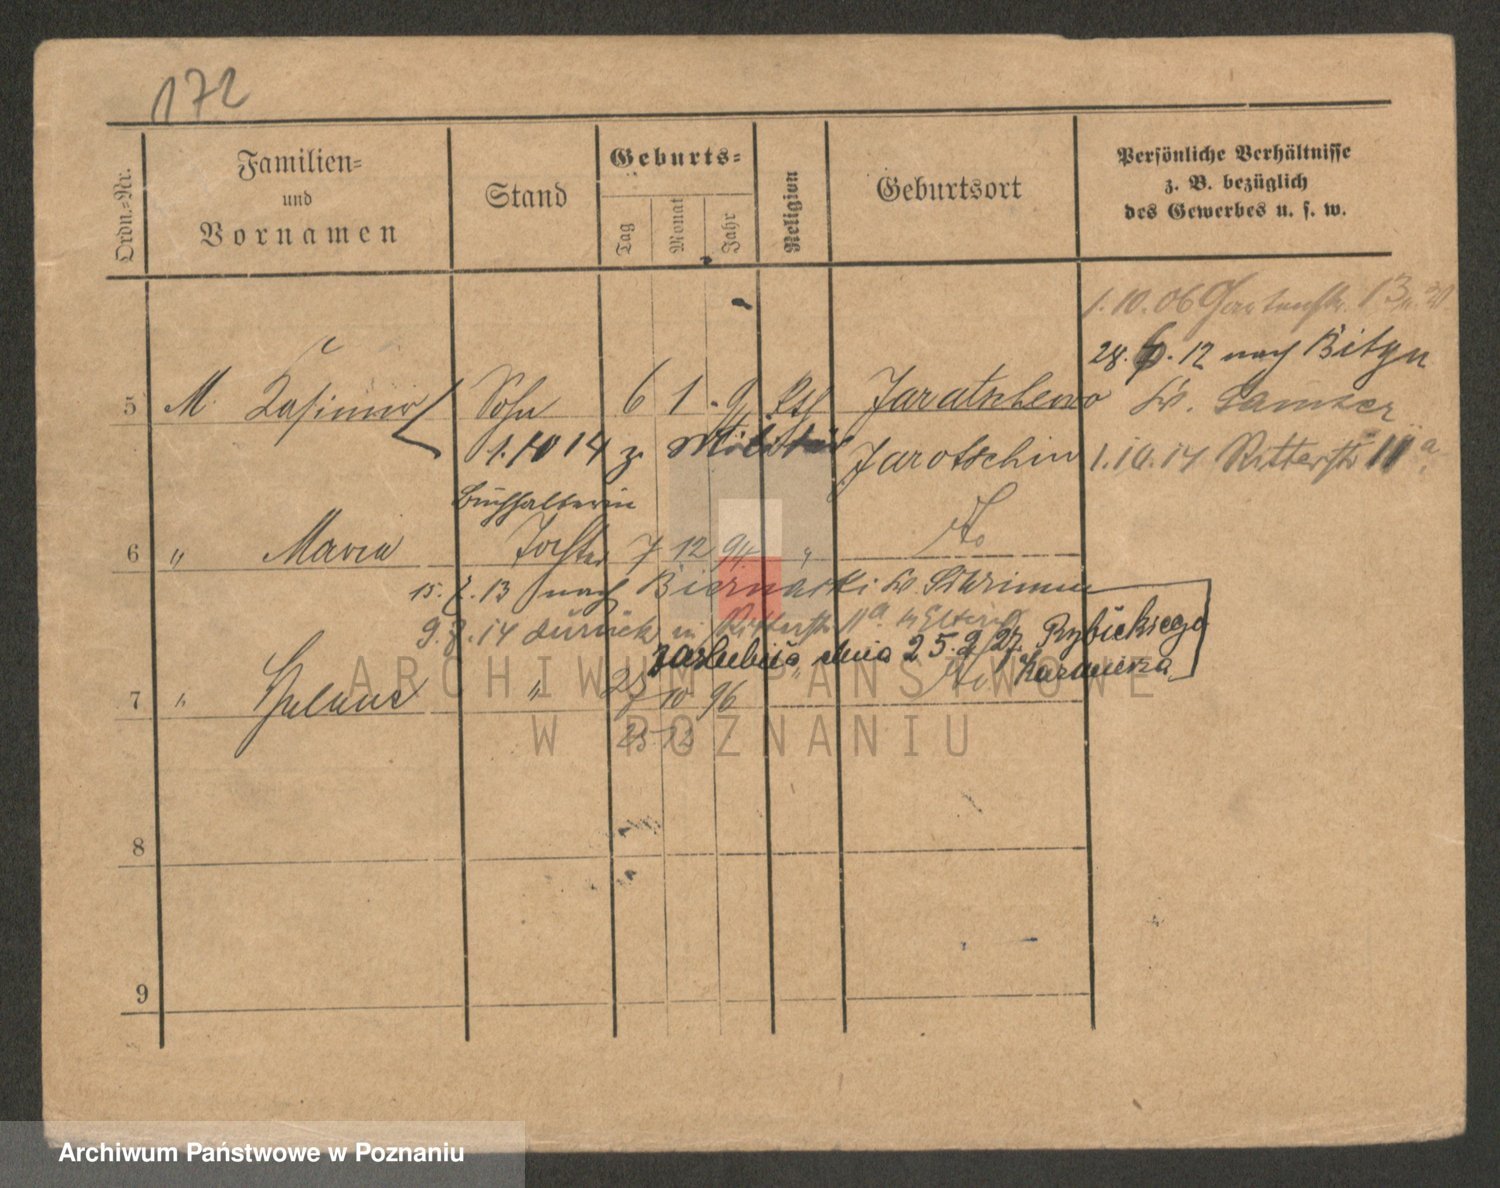 172
Ordn.-Nr.
Familien-
und
Vornamen
Stand
Geburts-
Tag
Monat
Jahr
Religion
Geburtsort
Persönliche Verhältnisse
z. B. bezüglich
des Gewerbes u. s. w.
1.10.06 Gartenstr. 13
28. 6. 12 nach Bityn
5 M. Kasimir Sohn 6 1 kth Jaratschewo Kr. Samter
1.10 14 z. Militär Jarotschin 1.10.14 Ritterstr 11a
Buchhalterin
6 " Maria Tochter 7 12 94 " do
15. 7. 13 nach Biernatki Kr. Schrimm
9. 7. 14 zurück in Ritterstr 11a
zaślubiła dnia 25.9 27 Rybickiego
Kazimierza
7 " " 25 10 96 " do
25 12
8
9
ARCHIWUM PAŃSTWOWE
W POZNANIU
Archiwum Państwowe w Poznaniu